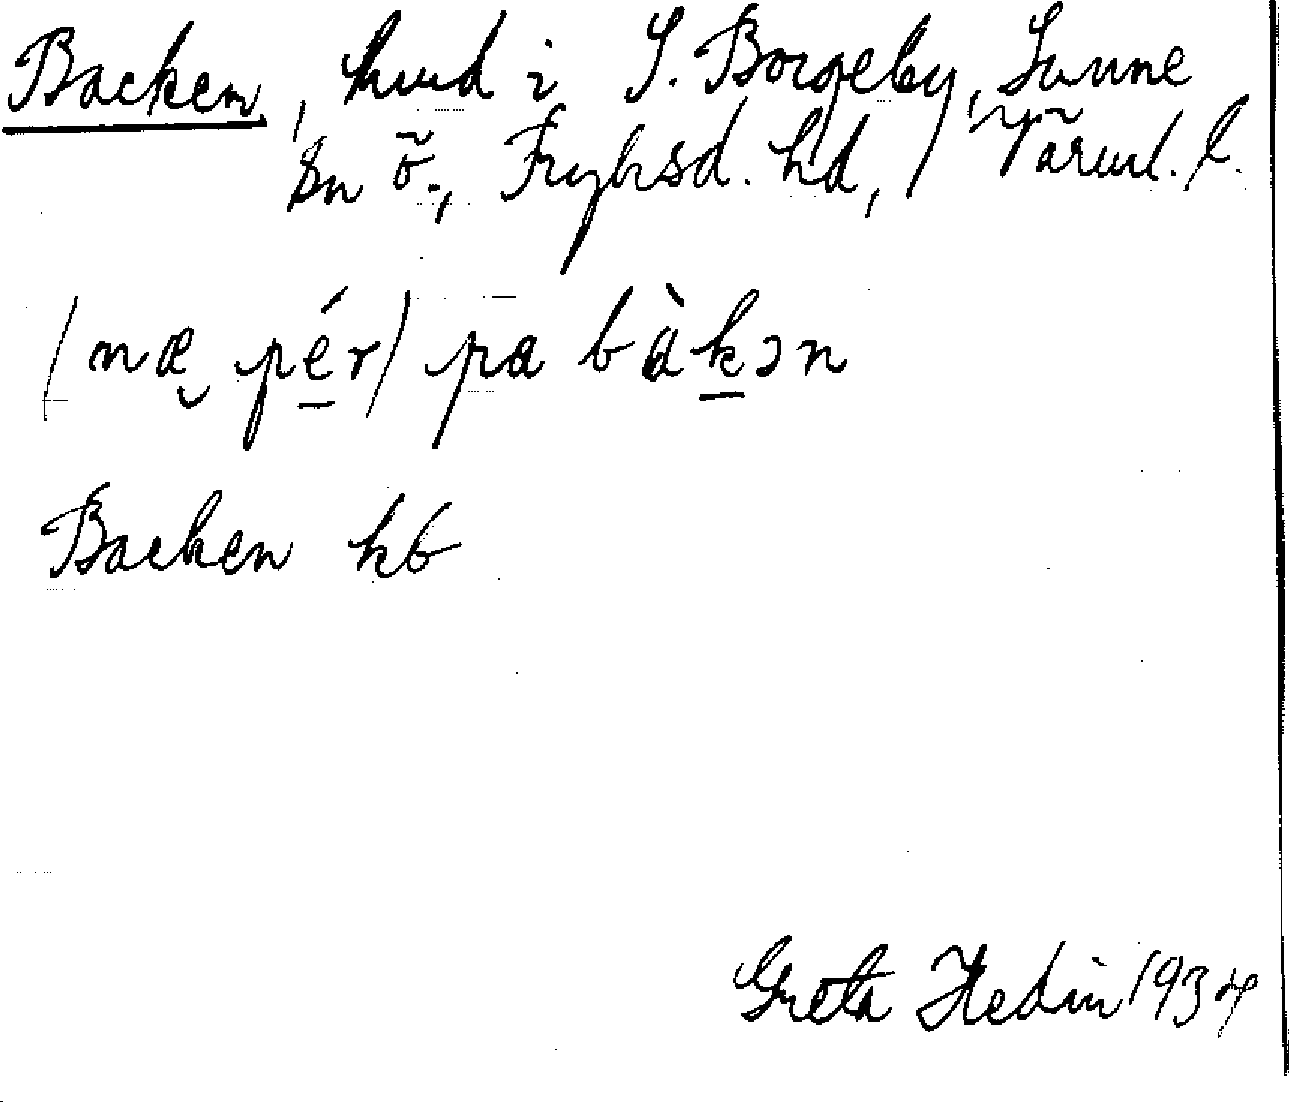 Backen, hmd i S. Borgeby, Sunne
sn ö., Fryksd. hd, Värml. l.
(næ̮ pé̱r) pa bàḵɔn
Backen kb
Greta Hedin 1934